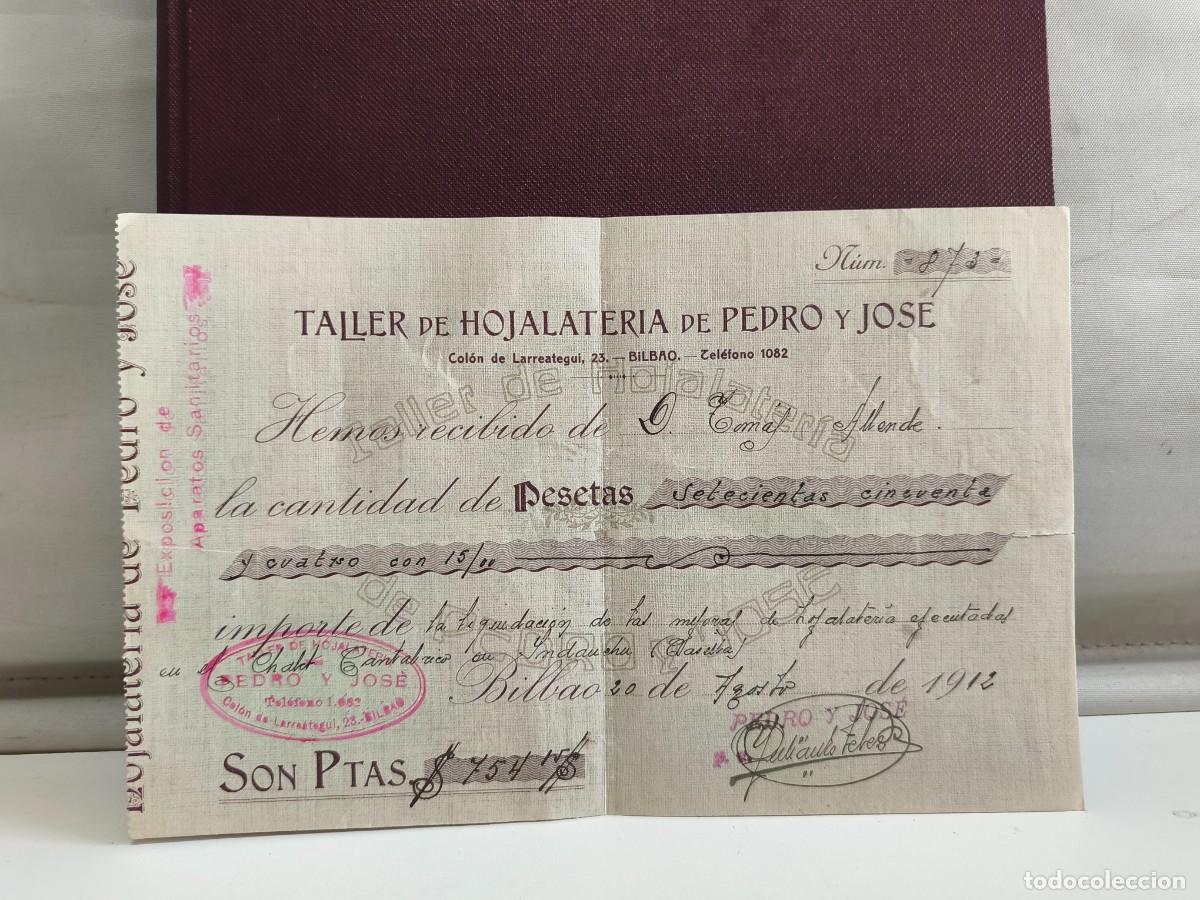 Núm. -873-
TALLER DE HOJALATERIA DE PEDRO Y JOSÉ
Colón de Larreategui, 23. — BILBAO. — Teléfono 1082
Taller de Hojalatería
de Pedro y José
Hemos recibido de D. Tomás Allende.
la cantidad de Pesetas setecientas cincuenta
y cuatro con 15/00
importe de la liquidación de las mejoras de hojalatería ejecutadas
en el Chalet Cantábrico en Indauchu
Bilbao 20 de Agosto de 1912
TALLER DE HOJALATERIA
PEDRO Y JOSÉ
Teléfono 1.082
Colón de Larreategui, 23.-BILBAO
PEDRO Y JOSÉ
P. P.
SON PTAS. $ 754 15 $
Hojalatería de Pedro y José
Exposición de
Aparatos Sanitarios
todocoleccion